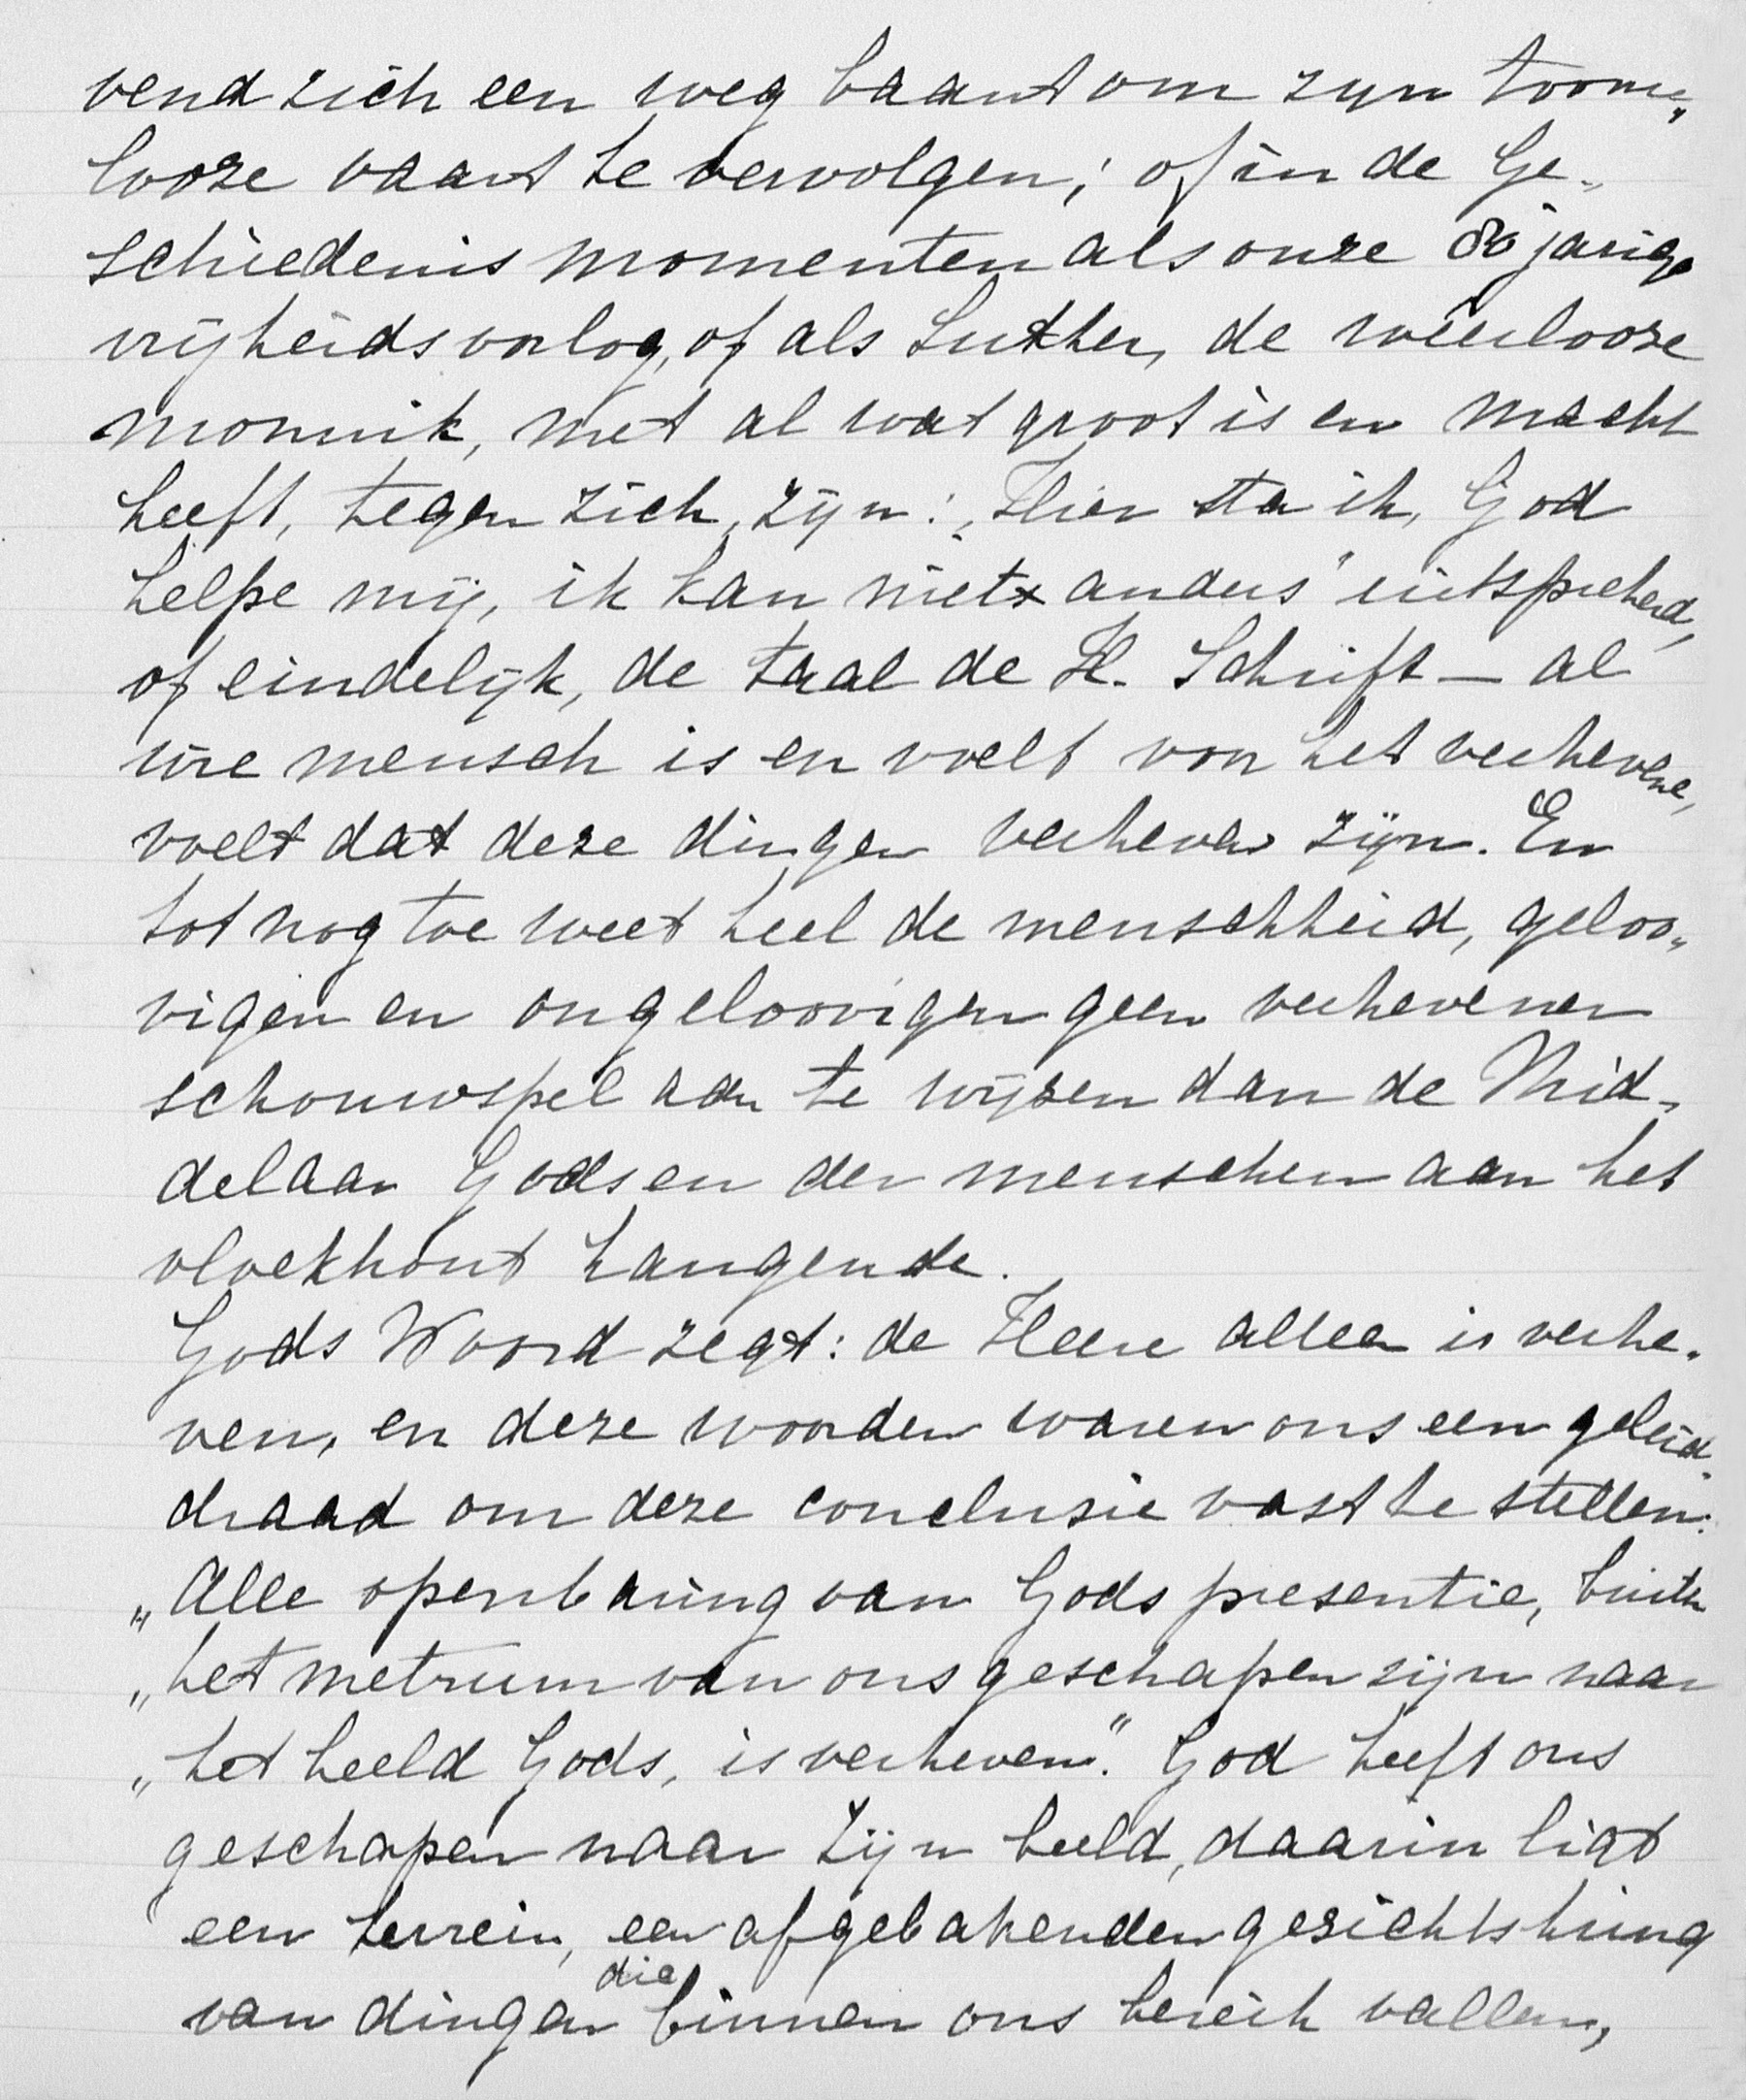 vend zich een weg baant om zyn toom„
looze vaart te vervolgen; of in de Ge„
schiedenis momenten als onze 80 jarige
vrijheidsoorlog, of als Luther, de weerlooze
monnik, met al wat groot is en macht
heeft, tegen zich, zijn: „Hier sta ik, God
helpe mij, ik kan niet anders" uitsprekend,
of eindelijk, de taal de H. Schrift — al
wie mensch is en voelt voor het verhevene,
voelt dat deze dingen verheven zijn. En
tot nog toe weet heel de menschheid, geloo„
vigen en ongeloovigen geen verhevener
schouwspel aan te wijzen dan de Mid„
delaar Gods en der menschen aan het
vloekhout hangende.
Gods Woord zegt: de Heere alleen is verhe„
ven, en deze woorden waren ons een geleid„
draad om deze conclusie vast te stellen:
„Alle openbaring van Gods presentie, buiten
„het metrum van ons geschapen zijn naar
„het beeld Gods, is verheven." God heeft ons
geschapen naar Zijn beeld, daarin ligt
een terrein, een afgebakenden gezichtskring
van dingen die binnen ons bereik vallen,